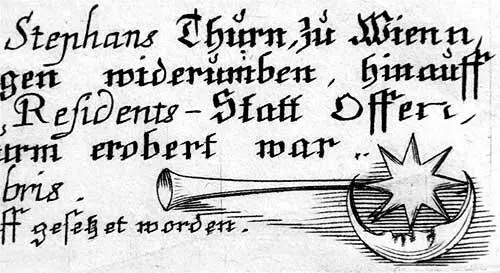 Stephans Thŭrn, zŭ Wienn,
gen widerŭmben, hinaŭff
Residents-Statt Offen,
ŭrm erobert war..
bris.
ff gesetzet worden.